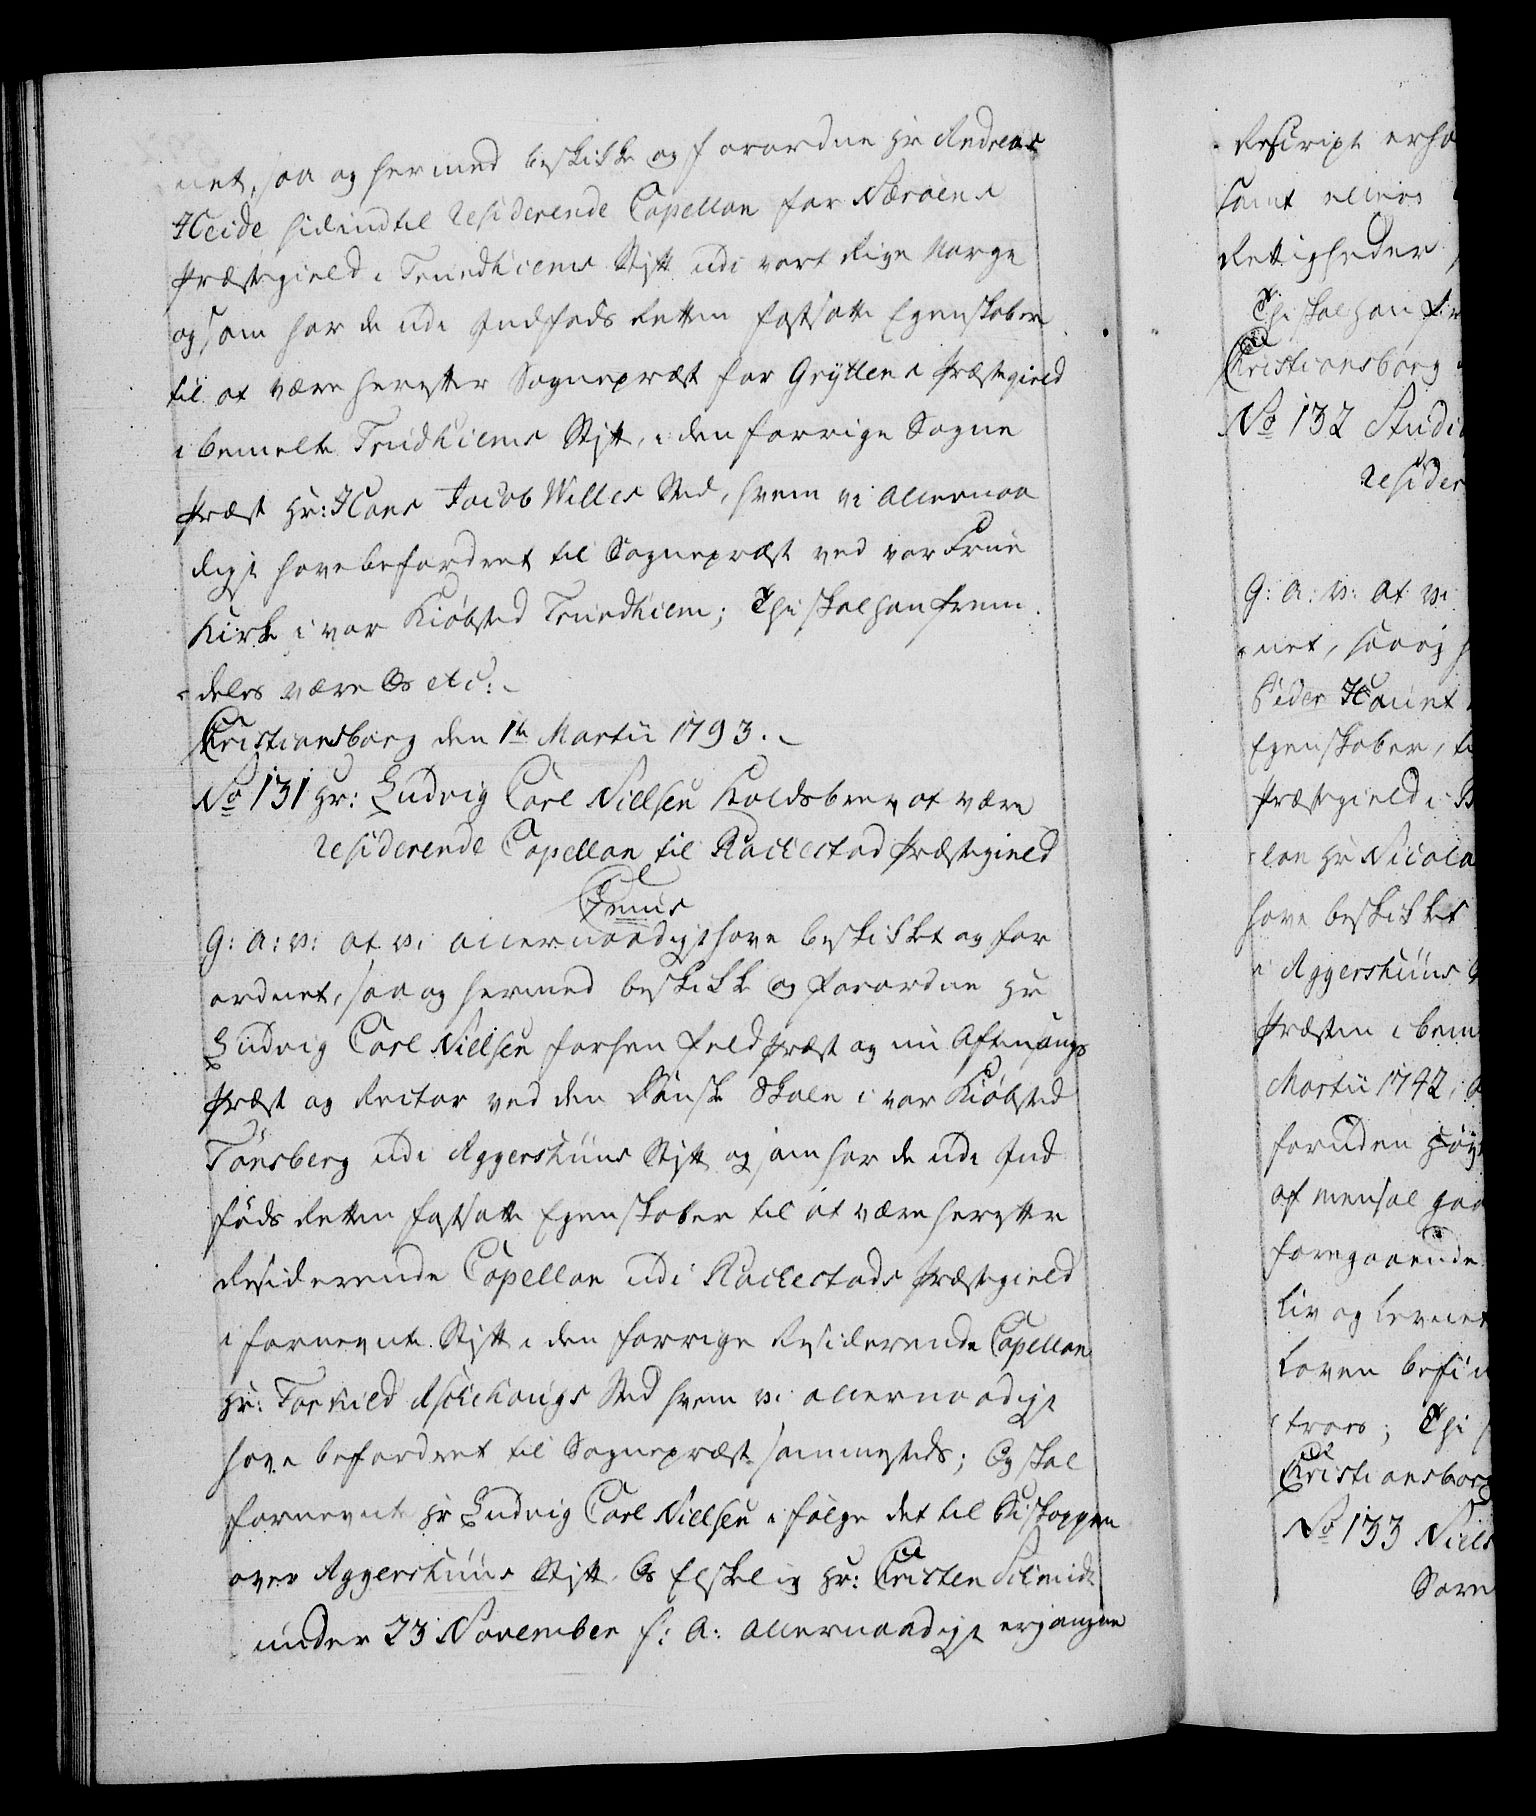 net, saa og hermed beskikke og forordne Hr Andreas
Heide hidindtil residerende Capellan for Nærøens
Præstegield i Trundhiems Stift udi vort Rige Norge
og som har de udi Indføds Retten fastsatte Egenskaber
til at være herefter Sognepræst for Gryttens Præstegield
i bemelte Trundhiems Stift, i den forrige Sogne
Præst Hr: Hans Jacob Willes Sted, hvem vi allernaa
digst have befordret til Sognepræst ved vor Frue
Kirke i vor Kiøbsted Trundhiem; Thi skal han frem
deles være Os etc:
Christiansborg den 1te Martii 1793.
No 131 Hr: Ludvig Carl Nielsen Kaldsbrev at være
residerende Capellan til Rackestad Præstegield
G: a: v: at vi allernaadigst have beskikket og for
ordnet, saa og hermed beskikke og forordne Hr
Ludvig Carl Nielsen forhen Feldpræst og nu Aftensangs
Præst og Rector ved den Danske Skole i vor Kiøbsted
Tønsberg udi Aggershuus Stift og som har de udi Ind
føds Retten fastsatte Egenskaber til at være herefter
Residerende Capellan udi Rackestads Præstegield
i fornevnte Stift i den forrige Residerende Capellan
Hr: Torkild Aschehougs Sted hvem vi allernaadigst
have befordret til Sognepræst sammesteds; Og skal
fornevnte Hr Ludvig Carl Nielsen i følge det til Biskoppen
over Aggershuus Stift Os Elskelig Hr: Christen Schmidt
under 23 November f: A: allernaadigst ergangne
Rescript erho
samt ellers
Rettigheder
Thi skal han fr
Christiansborg
No 132 Studi
resider
G: a: v: at vi
net, saa og h
Peder Hount
Egenskaber, ti
Præstegield i B
lan Hr Nicola
have beskikket
i Aggershuus
Præsten i bem
Martii 1742,
foruden Høy
af mensal god
foregaaende
Liv og Levnet
Loven befin
troes; Thi
Christiansborg
No 133 Niels
Sorn